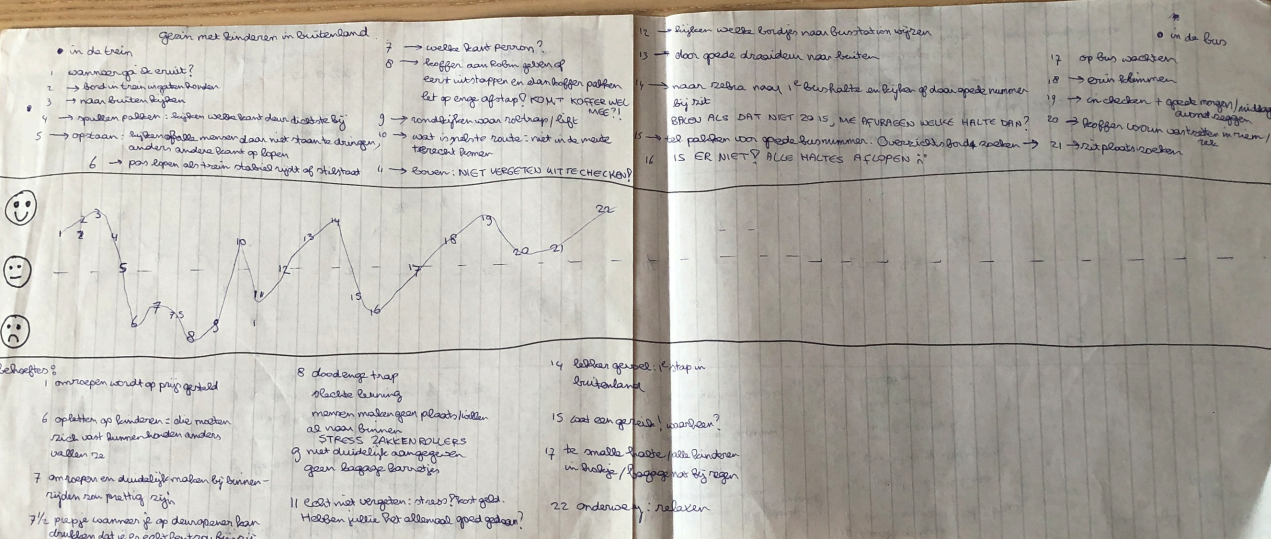 gezin met kinderen in buitenland
• in de trein
1 wanneer ga ik eruit?
2 → bord in trein in gaten houden
3 → naar buiten kijken
4 → spullen pakken: kijken welke kant deur dichtste bij
5 → opstaan: kijken of alle mensen daar niet staan te dringen,
anders andere kant op lopen
6 → pas lopen als trein stabiel rijdt of stilstaat
7 → welke kant perron?
8 → koffer aan Robin geven of
eerst uitstappen en dan koffer pakken
let op enge afstap? KOMT KOFFER WEL
MEE?!
9 → rondkijken waar roltrap/lift
10 → wat is snelste route: niet in de meute
terecht komen
11 → boven: NIET VERGETEN UIT TE CHECKEN?
12 → kijken welke bordjes naar busstation wijzen
13 → door goede draaideur naar buiten
14 → naar zebra naar 1e bushalte en kijken of daar goede nummer
bij zit
BALEN ALS DAT NIET ZO IS, ME AFVRAGEN WELKE HALTE DAN?
15 → tel pakken voor goede busnummer. Overzichtsbord zoeken →
16 IS ER NIET? ALLE HALTES AFLOPEN :(
• in de bus
17 op bus wachten
18 → erin klimmen
19 → inchecken + goede morgen/middag
avond zeggen
20 → koffer voorin vastzetten in riem/
21 → zitplaats zoeken
1 2 2 3 4 5 6 7 7,5 8 9 10 11 12 13 14 15 16 17 18 19 20 21 22
1
behoeftes:
1 omroepen wordt op prijs gesteld
6 opletten op kinderen: die moeten
zich vast kunnen houden anders
vallen ze
7 omroepen en duidelijk maken bij binnen-
rijden zou prettig zijn
7½ piepje wanneer je op deuropener kan
drukken dat ie er echt
8 doodenge trap
slechte leuning
mensen maken geen plaats/willen
al naar binnen
STRESS ZAKKENROLLERS
9 niet duidelijk aangegeven
geen bagage karretjes
11 echt niet vergeten: stress? kost geld.
Hebben jullie het allemaal goed gedaan?
14 lekker gevoel: 1e stap in
buitenland
15 wat een gezeik! waarheen?
17 te smalle halte/alle kinderen
in hokje/bagage nat bij regen
22 onderweg: relaxen